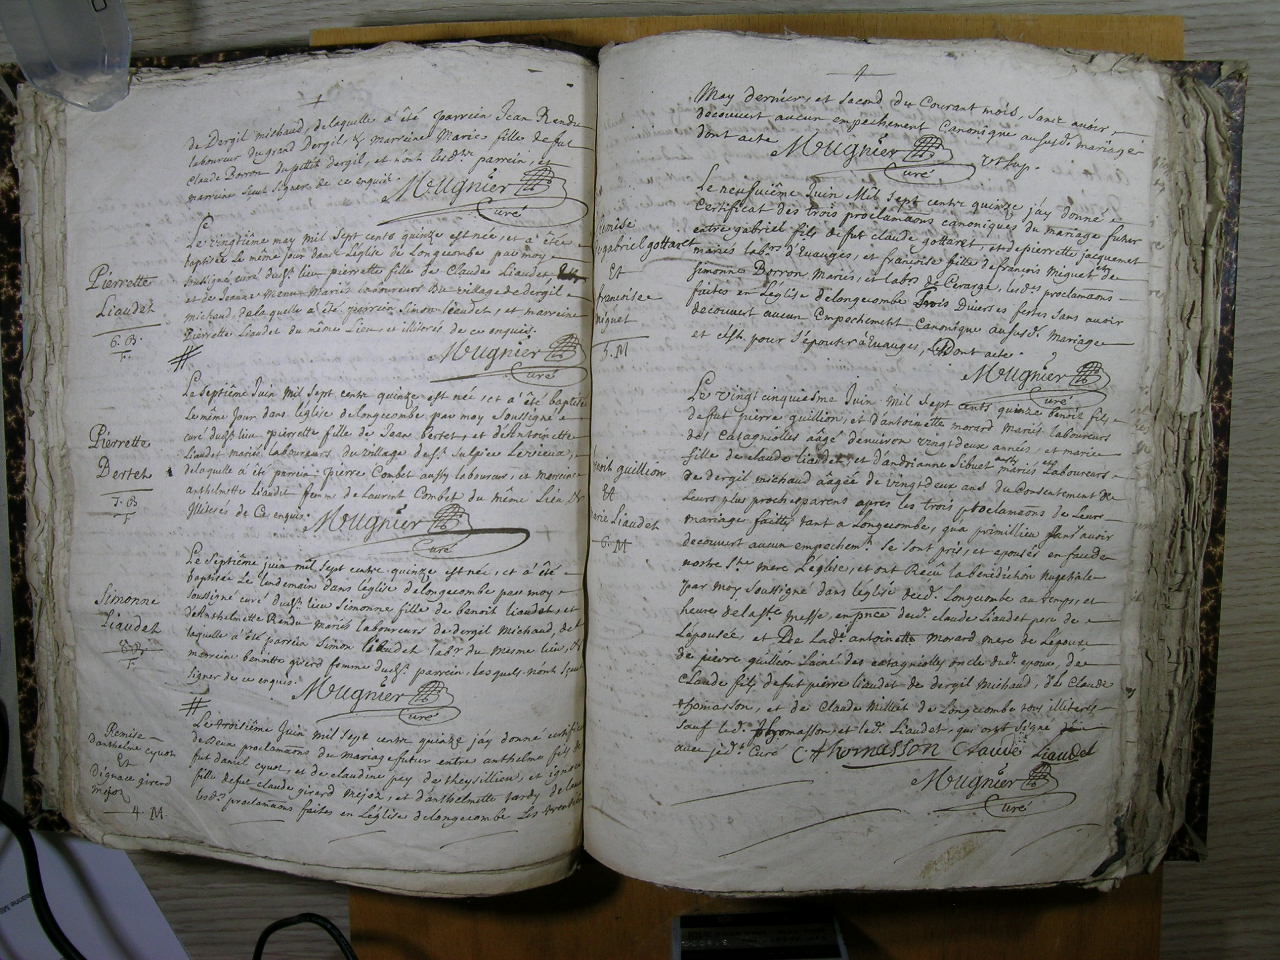 de Dergil michaud, delaquelle a été parrein Jean Rendu
laboureur du grand Dergil, & marreine Marie fille de fut
Claude Borron du petit dergil, et n'ont lesd.ts parrein, et
marreine sceut signer de ce enquis.
Mugnier
Curé
Pierrette
Liaudet
6. B.
F.
Le vingtième may mil sept cents quinze est née, et a été
baptisée le même jour dans l'Eglise de Longecombe par moy
soussigné curé dud.t lieu pierrette fille de Claude Liaudet
et de Jeanne Mariés laboureurs du village de dergil
michaud, delaquelle a été parrein Simon Liaudet, et marreine
Pierrette Liaudet du même Lieu, et illiterés de ce enquis.
Mugnier
Curé
Pierrette
Bertet
7. B
F
Le septième Juin mil sept cents quinze est née, et a été baptisée
le même jour dans l'église de longecombe par moy soussigné
curé dud.t lieu pierrette fille de Jean Bertet, et d'Antoinette
Liaudet mariés laboureurs du village de s.t Sulpice Levieux,
delaquelle a été parrein pierre Combet aussy laboureur, et marreine
anthelmette Liaudet femme de Laurent Combet du même Lieu,
illiterés de Ce enquis.
Mugnier
Curé
Simonne
Liaudet
8. B.
F.
Le septième juin mil sept cents quinze est née, et a été
baptisée Le lendemain dans l'église de longecombe par moy
soussigné curé dud.t lieu Simonne fille de benoit Liaudet, et
d'Anthelmette Rendu Mariés laboureurs de dergil michaud, de
laquelle a été parrein Simon liaudet lab.r du mesme lieu, &
marrein benoitte girerd femme dud.t parrein, lesquels n'ont sceu
signer de ce enquis.
Mugnier
Curé
Remise
D'anthelme cyvot
Et
D'ignace girerd
mejoz
4. M
Le troisième Juin mil sept cents quinze j'ay donné certificat
de deux proclamaōns du mariage futur entre anthelme fils de
fut daniel cyvot, et de claudine pey de theysillieu, et ignace
fille de fut claude girerd mejoz, et d'anthelmette tardy de
lesd.s proclamaōns faites en L'église de longecombe les trente
May dernier, et second du Courant mois, sans avoir
decouvert aucun empechement Canonique aususd.t mariage
dont acte
Mugnier
curé
Remise
gabriel gottaret
Et
francoise
miguet
5. M
Le neufvième Juin Mil sept cents quinze j'ay donné
certificat des trois proclamaōns canoniques du mariage futur
entre gabriel fils de fut claude gottaret, et de pierrette jacquemet
mariés lab.rs d'Evauges, et francoise fille de francois Miguet, et de
simonne Borron Mariés, et lab.rs de Cerarge, lesd.s proclamaōns
faites en L'église de longecombe Trois Divers festes sans avoir
decouvert aucun Empechement Canonique aususd.t Mariage
et c'est pour s'épouser à Evauges, Dont acte.
Mugnier
Curé
benoit guillion
Et
marie Liaudet
6. M
Le vingt cinquiesme Juin mil sept cents quinze benoit fils
de fut pierre guillion, et d'antoinette morard mariés laboureurs
des Catagniolles aagé d'environ vingt deux années, et marie
fille de claude liaudet, et d'andrianne Sibuet mariés Laboureurs
de dergil michaud aagée de vingt deux ans du Consentement de
Leurs plus proches parens apres les trois proclamaōns de Leur
mariage faitte tant a Longecombe, qua primillieu sans avoir
decouvert aucun empechem.t se sont pris, et epousés en face de
nostre S.te mere L'église, et ont Recû la bénédiction nuptiale
par moy soussigné dans léglise de Longecombe au temps, et
heure de la s.te messe, en pnce de claude Liaudet pere de
L'épousée, et De Lad.e antoinette morard mere de L'époux,
de pierre guillion L'ainé des catagniolles oncle dud. epoux, de
Claude fils de fut pierre liaudet de dergil michaud, de Claude
thomasson, et de Claude Millet de Longecombe tous illiterés
sauf led. thomasson, et led. Liaudet, qui ont signé
avec je d.t Curé C thomasson Claude Liaudet
Mugnier
Curé